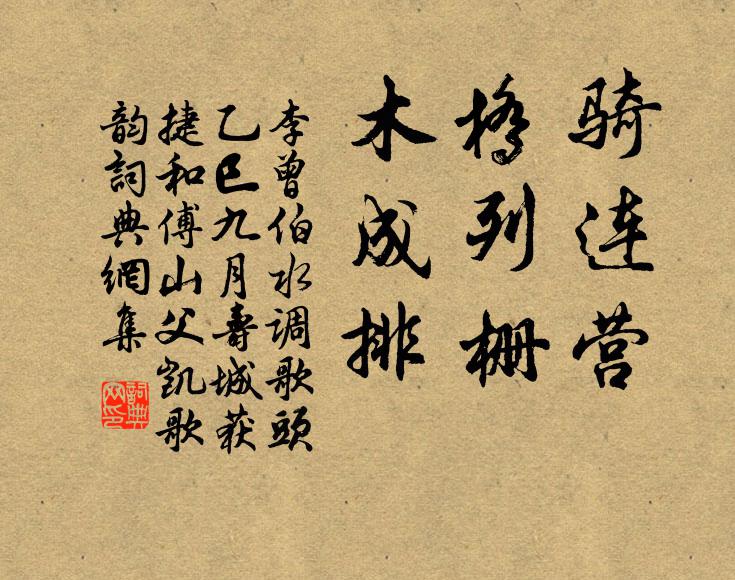 骑连营
橋列栅
木成排
李曾伯水调歌頭
乙巳九月壽城获
捷和傅山父凯歌
韵詞典網集
詞典
网印